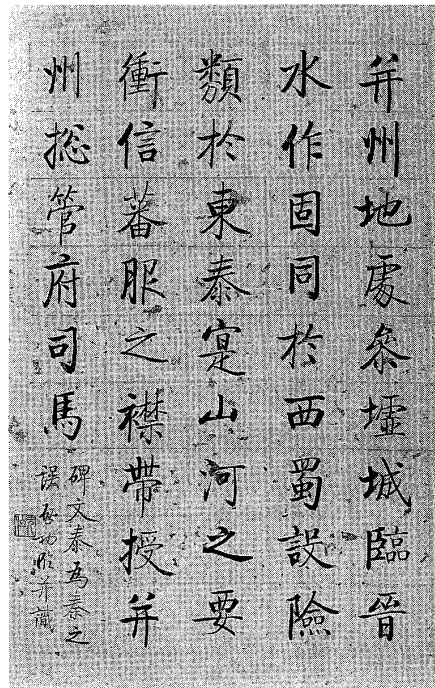 并州地處叅墟城臨晉
水作固同於西蜀設險
類於東泰寔山河之要
衝信蕃服之襟帶授并
州捴管府司馬
碑文泰爲秦之
誤啓功臨并識